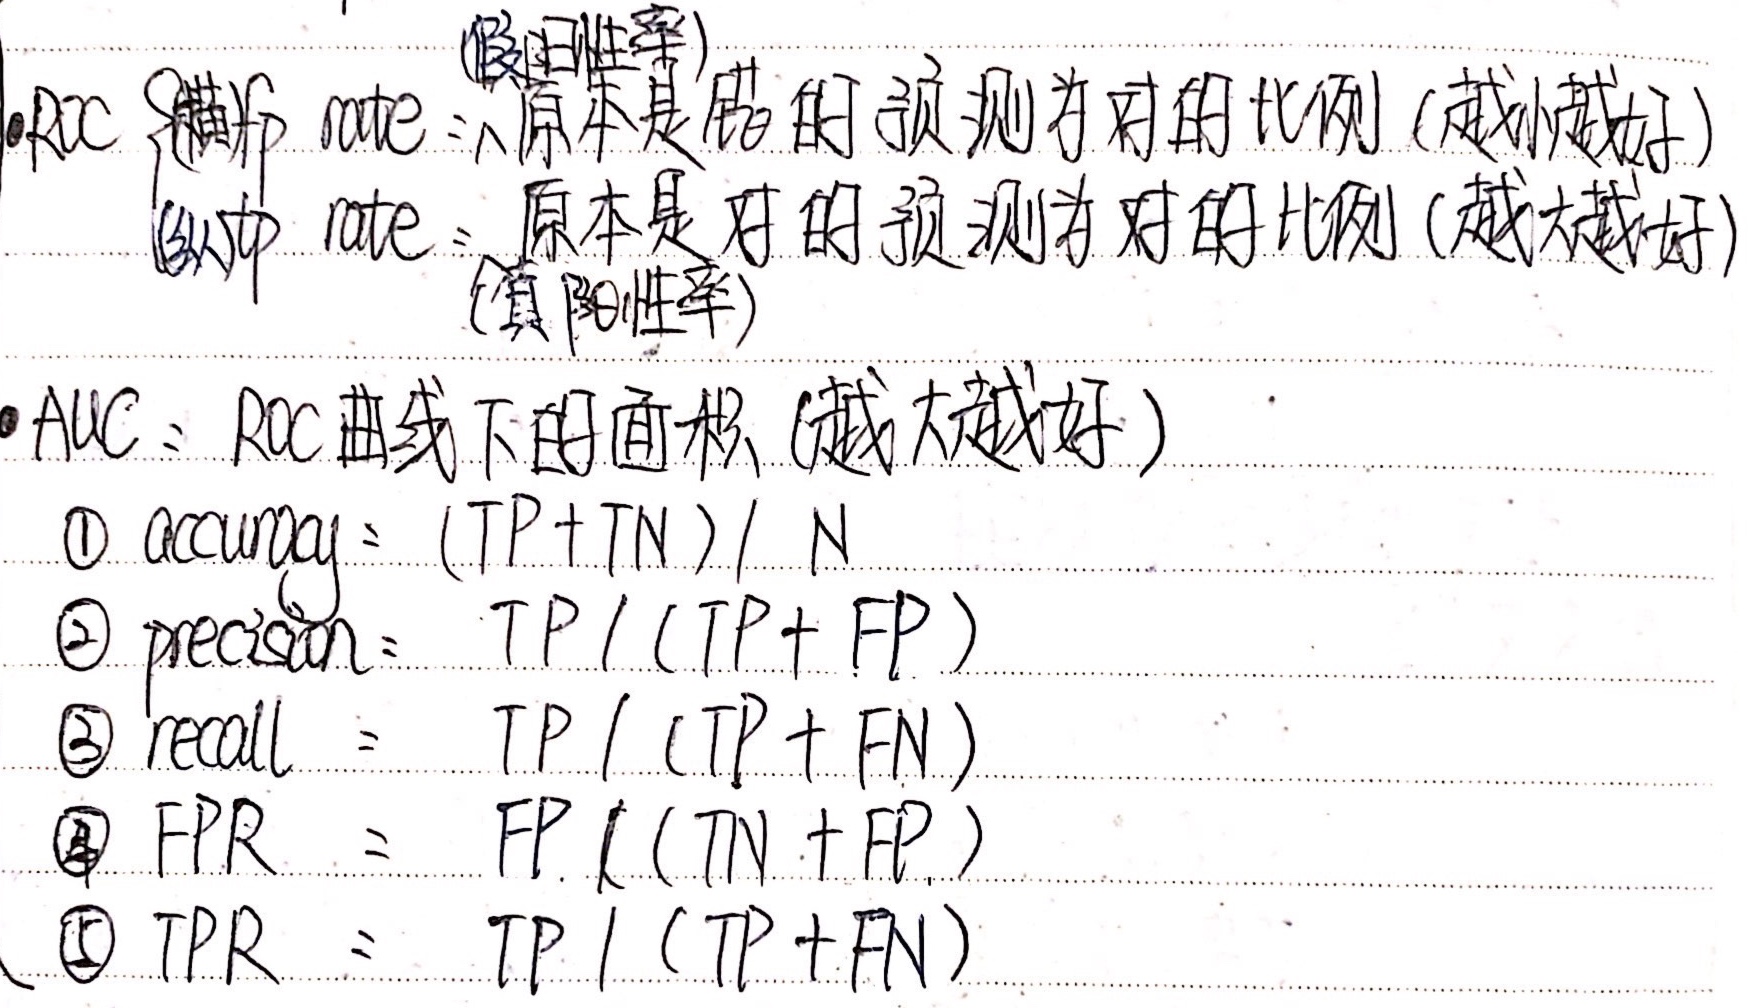 (假阳性率)
•ROC {横fp rate:∧原本是错的预测为对的比例(越小越好)
纵tp rate:原本是对的预测为对的比例(越大越好)
(真阳性率)
•AUC:ROC曲线下的面积(越大越好)
① accuracy:(TP+TN)/ N
② precision: TP/(TP+FP)
③ recall = TP/(TP+FN)
④ FPR = FP/(TN+FP)
⑤ TPR = TP/(TP+FN)